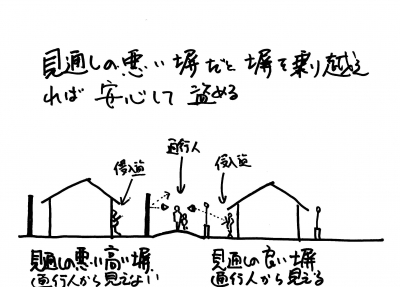 見通しの悪い塀だと塀を乗り越え
れば安心して盗める
通行人
侵入盗
侵入盗
見通しの悪い高い塀
通行人から見えない
見通しの良い塀
通行人から見える